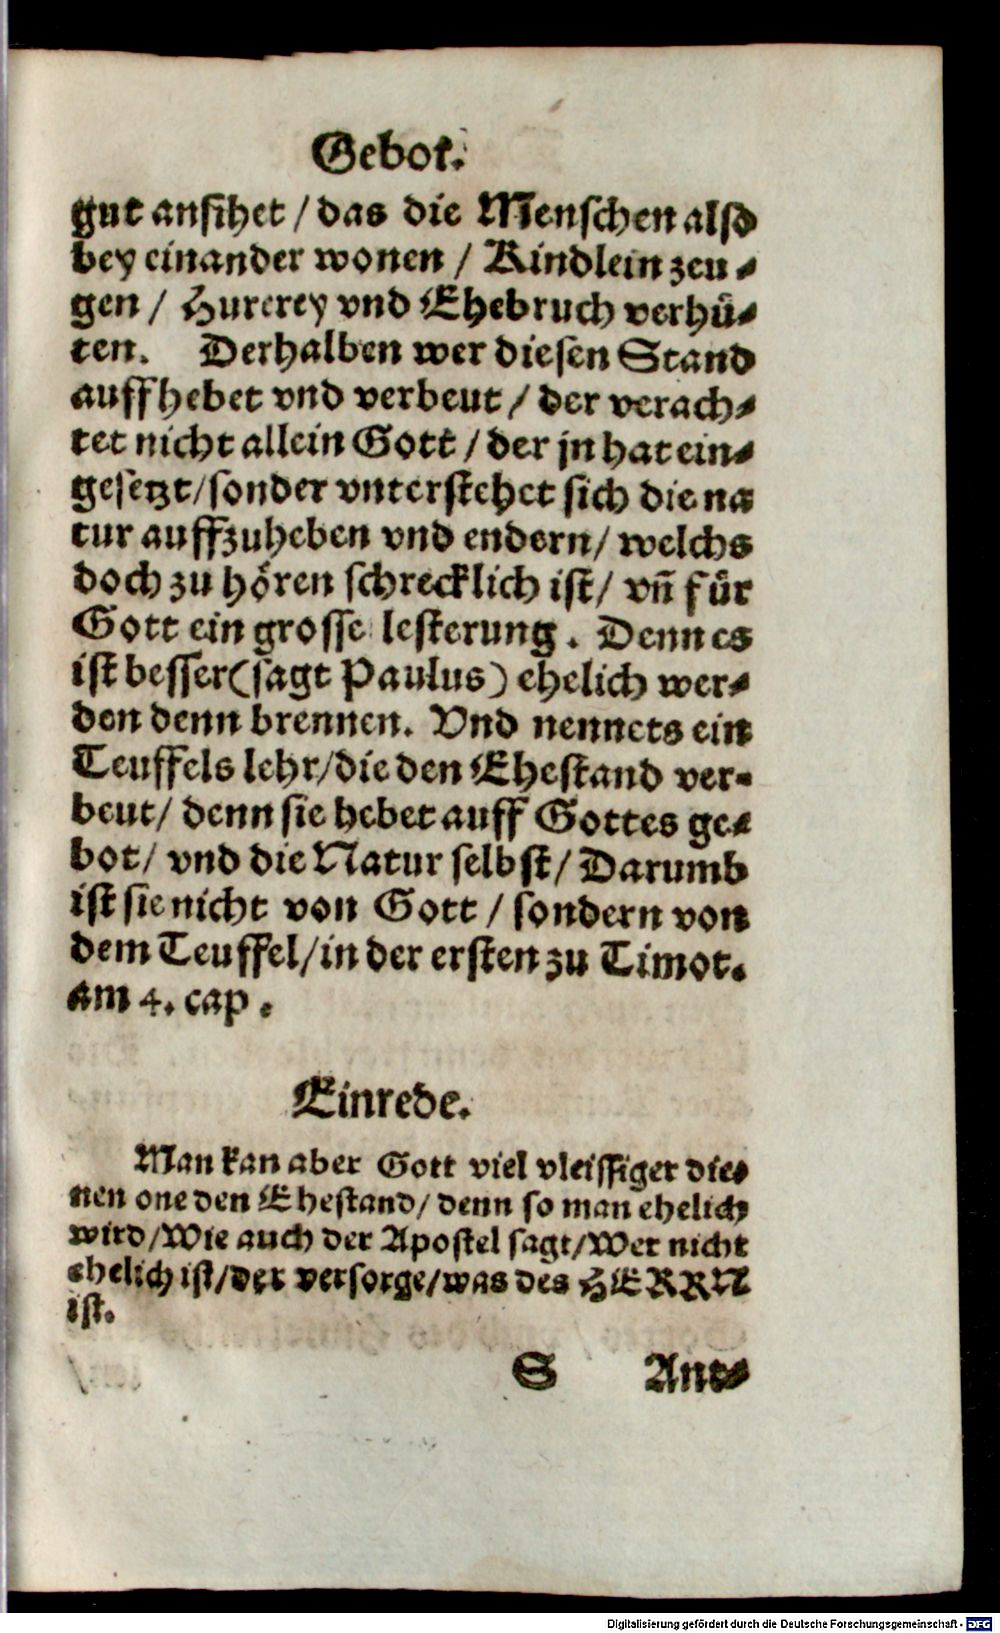 Gebot.
gut ansihet / das die Menschen also
bey einander wonen / Kindlein zeu⸗
gen / Hurerey vnd Ehebruch verhuͤ⸗
ten. Derhalben wer diesen Stand
auffhebet vnd verbeut / der verach⸗
tet nicht allein Gott / der jn hat ein⸗
gesetzt/sonder vnterstehet sich die na
tur auffzuheben vnd endern/ welchs
doch zu hoͤren schrecklich ist/ vn̄ fuͤr
Gott ein grosse lesterung. Denn es
ist besser(sagt Paulus) ehelich wer⸗
den denn brennen. Vnd nennets ein
Teuffels lehr/die den Ehestand ver⸗
beut/ denn sie hebet auff Gottes ge⸗
bot/ vnd die Natur selbst/ Darumb
ist sie nicht von Gott / sondern von
dem Teuffel/in der ersten zu Timot.
am 4. cap.
Einrede.
Man kan aber Gott viel vleissiger die⸗
nen one den Ehestand/ denn so man ehelich
wird/Wie auch der Apostel sagt/Wer nicht
ehelich ist/der versorge/was des HERRN
ist.
S Ant⸗
Digitalisierung gefördert durch die Deutsche Forschungsgemeinschaft - DFG